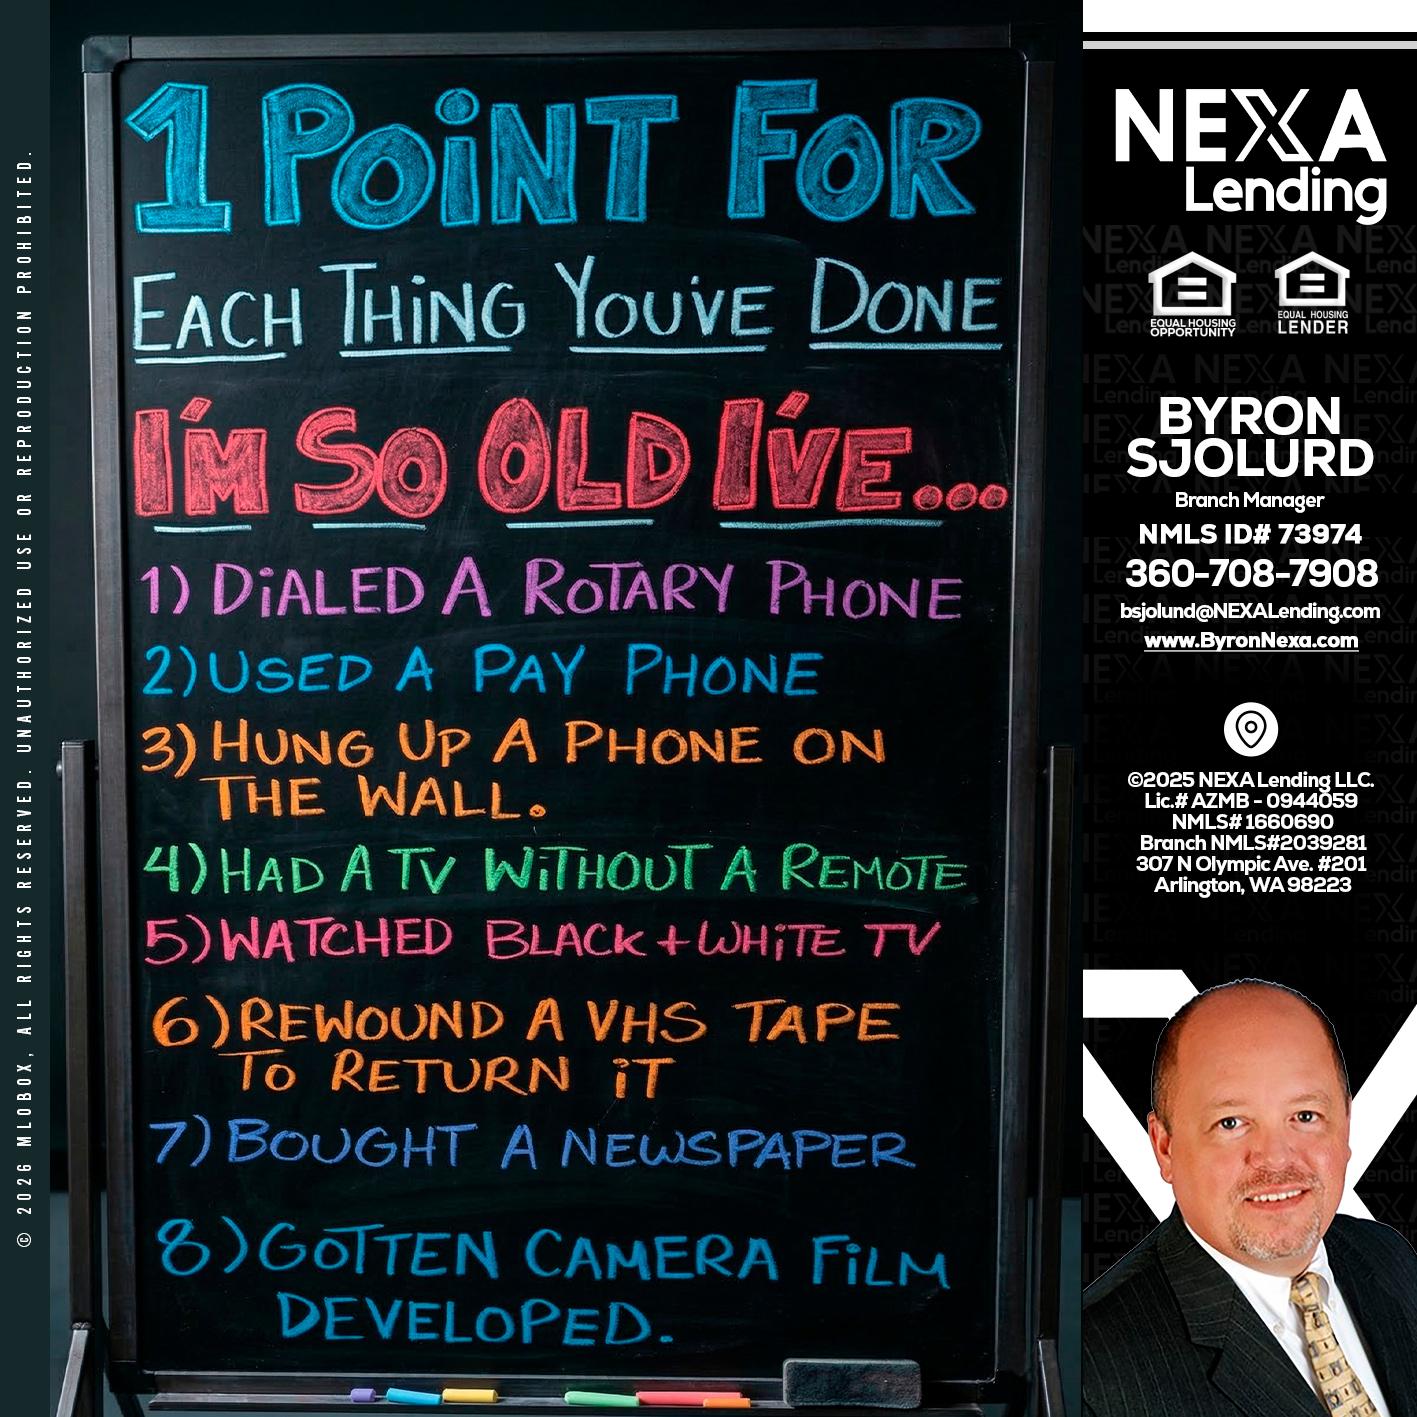 © 2026 MLOBOX, ALL RIGHTS RESERVED. UNAUTHORIZED USE OR REPRODUCTION PROHIBITED.
1 POINT FOR
EACH THING YOU'VE DONE
I'M SO OLD I'VE...
1) DIALED A ROTARY PHONE
2) USED A PAY PHONE
3) HUNG UP A PHONE ON
THE WALL.
4) HAD A TV WITHOUT A REMOTE
5) WATCHED BLACK + WHITE TV
6) REWOUND A VHS TAPE
TO RETURN IT
7) BOUGHT A NEWSPAPER
8) GOTTEN CAMERA FILM
DEVELOPED.
NEXA
Lending
EQUAL HOUSING
OPPORTUNITY
EQUAL HOUSING
LENDER
BYRON
SJOLURD
Branch Manager
NMLS ID# 73974
360-708-7908
bsjolund@NEXALending.com
www.ByronNexa.com
©2025 NEXA Lending LLC.
Lic.# AZMB - 0944059
NMLS# 1660690
Branch NMLS#2039281
307 N Olympic Ave. #201
Arlington, WA 98223